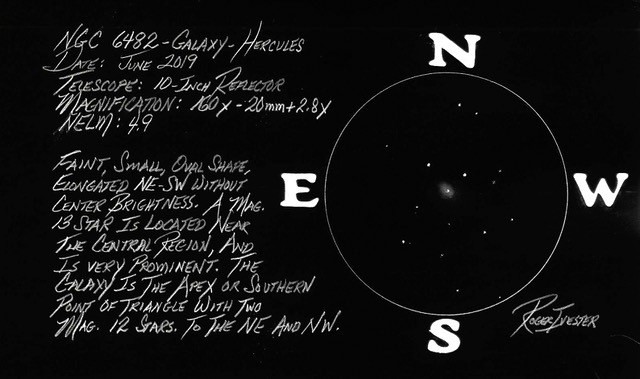 NGC 6482-Galaxy-Hercules
Date: June 2019
Telescope: 10-Inch Reflector
Magnification: 160x - 20mm+2.8x
NELM: 4.9
Faint, Small, Oval Shape,
Elongated NE-SW Without
Center Brightness. A Mag.
13 Star Is Located Near
The Central Region, And
Is Very Prominent. The
Galaxy Is The Apex or Southern
Point of Triangle With Two
Mag. 12 Stars. To The NE And NW.
N
E
W
S
Roger Ivester